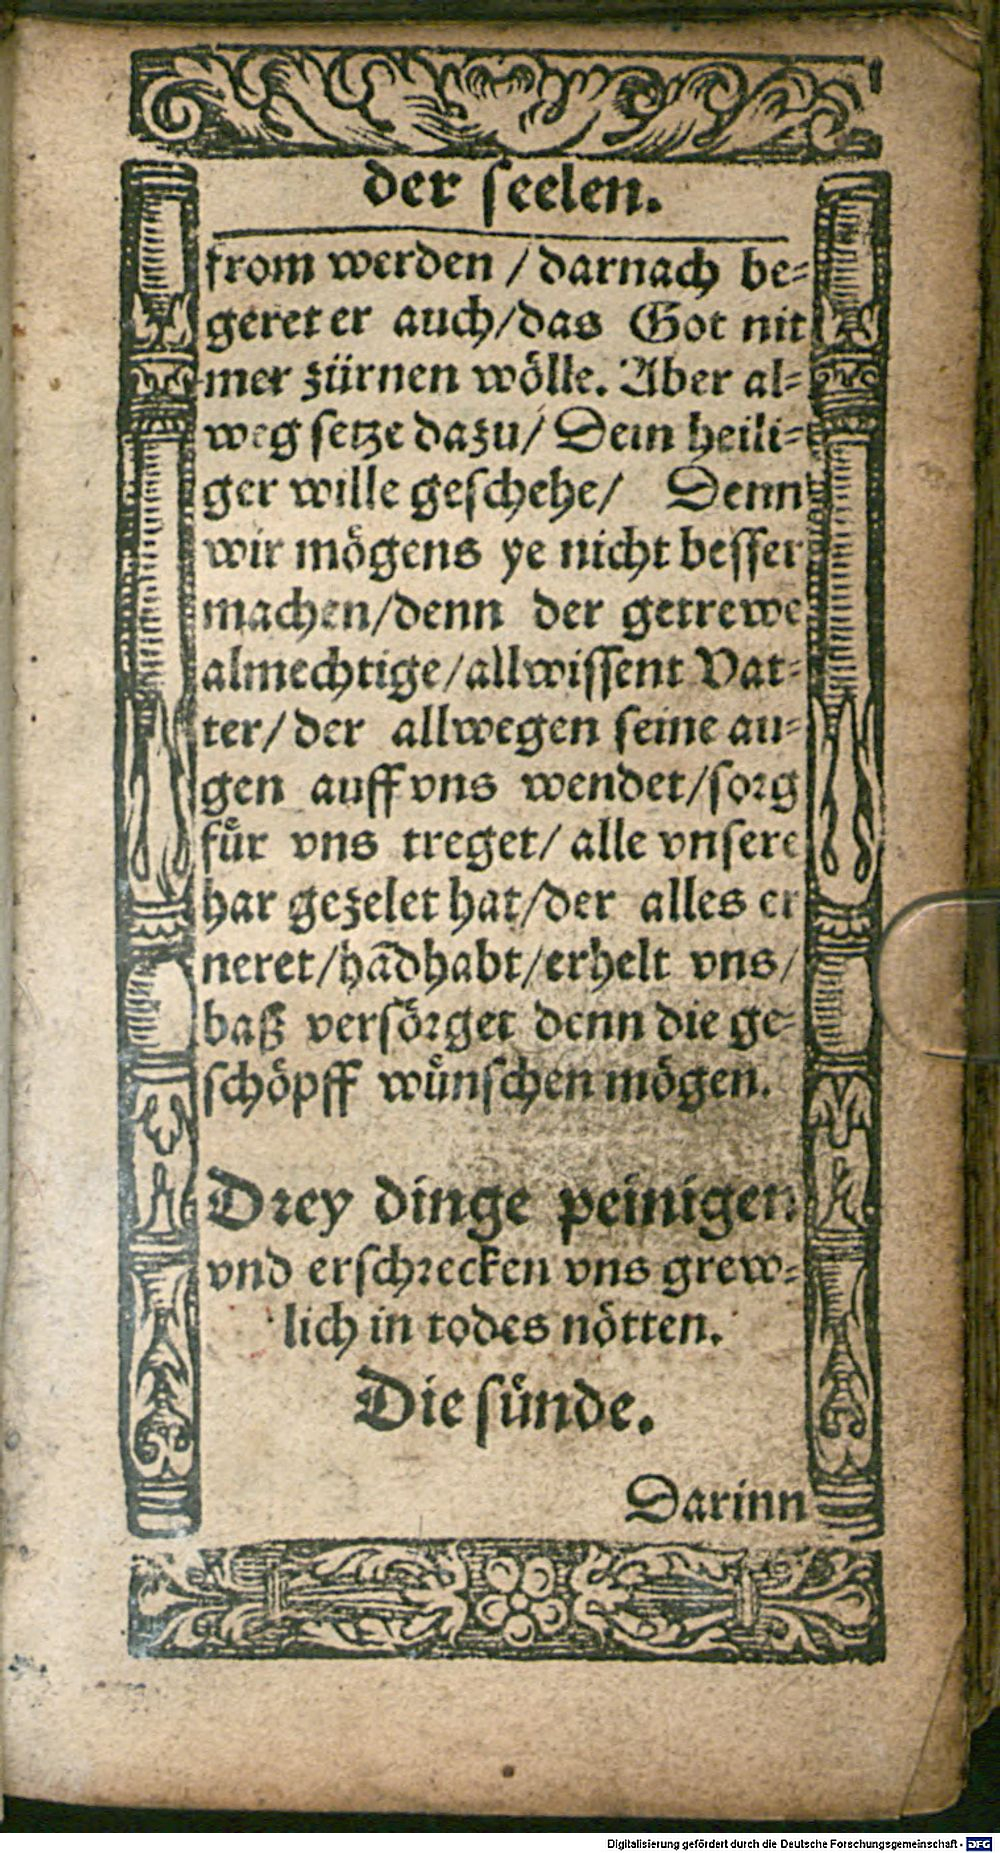 der seelen.
from werden / darnach be⸗
geret er auch/das Got nit
mer zürnen wölle. Aber al⸗
weg setze dazu/ Dein heili⸗
ger wille geschehe/ Denn
wir mögens ye nicht besser
machen/denn der getrewe
almechtige/allwissent Vat⸗
ter/ der allwegen seine au⸗
gen auff vns wendet/sorg
fůr vns treget/ alle vnsere
har gezelet hat/der alles er
neret/hãdhabt/erhelt vns/
baß versörget denn die ge⸗
schöpff wůnschen mögen.
Drey dinge peinigen
vnd erschrecken vns grew⸗
lich in todes nötten.
Die sůnde.
Darinn
Digitalisierung gefördert durch die Deutsche Forschungsgemeinschaft - DFG